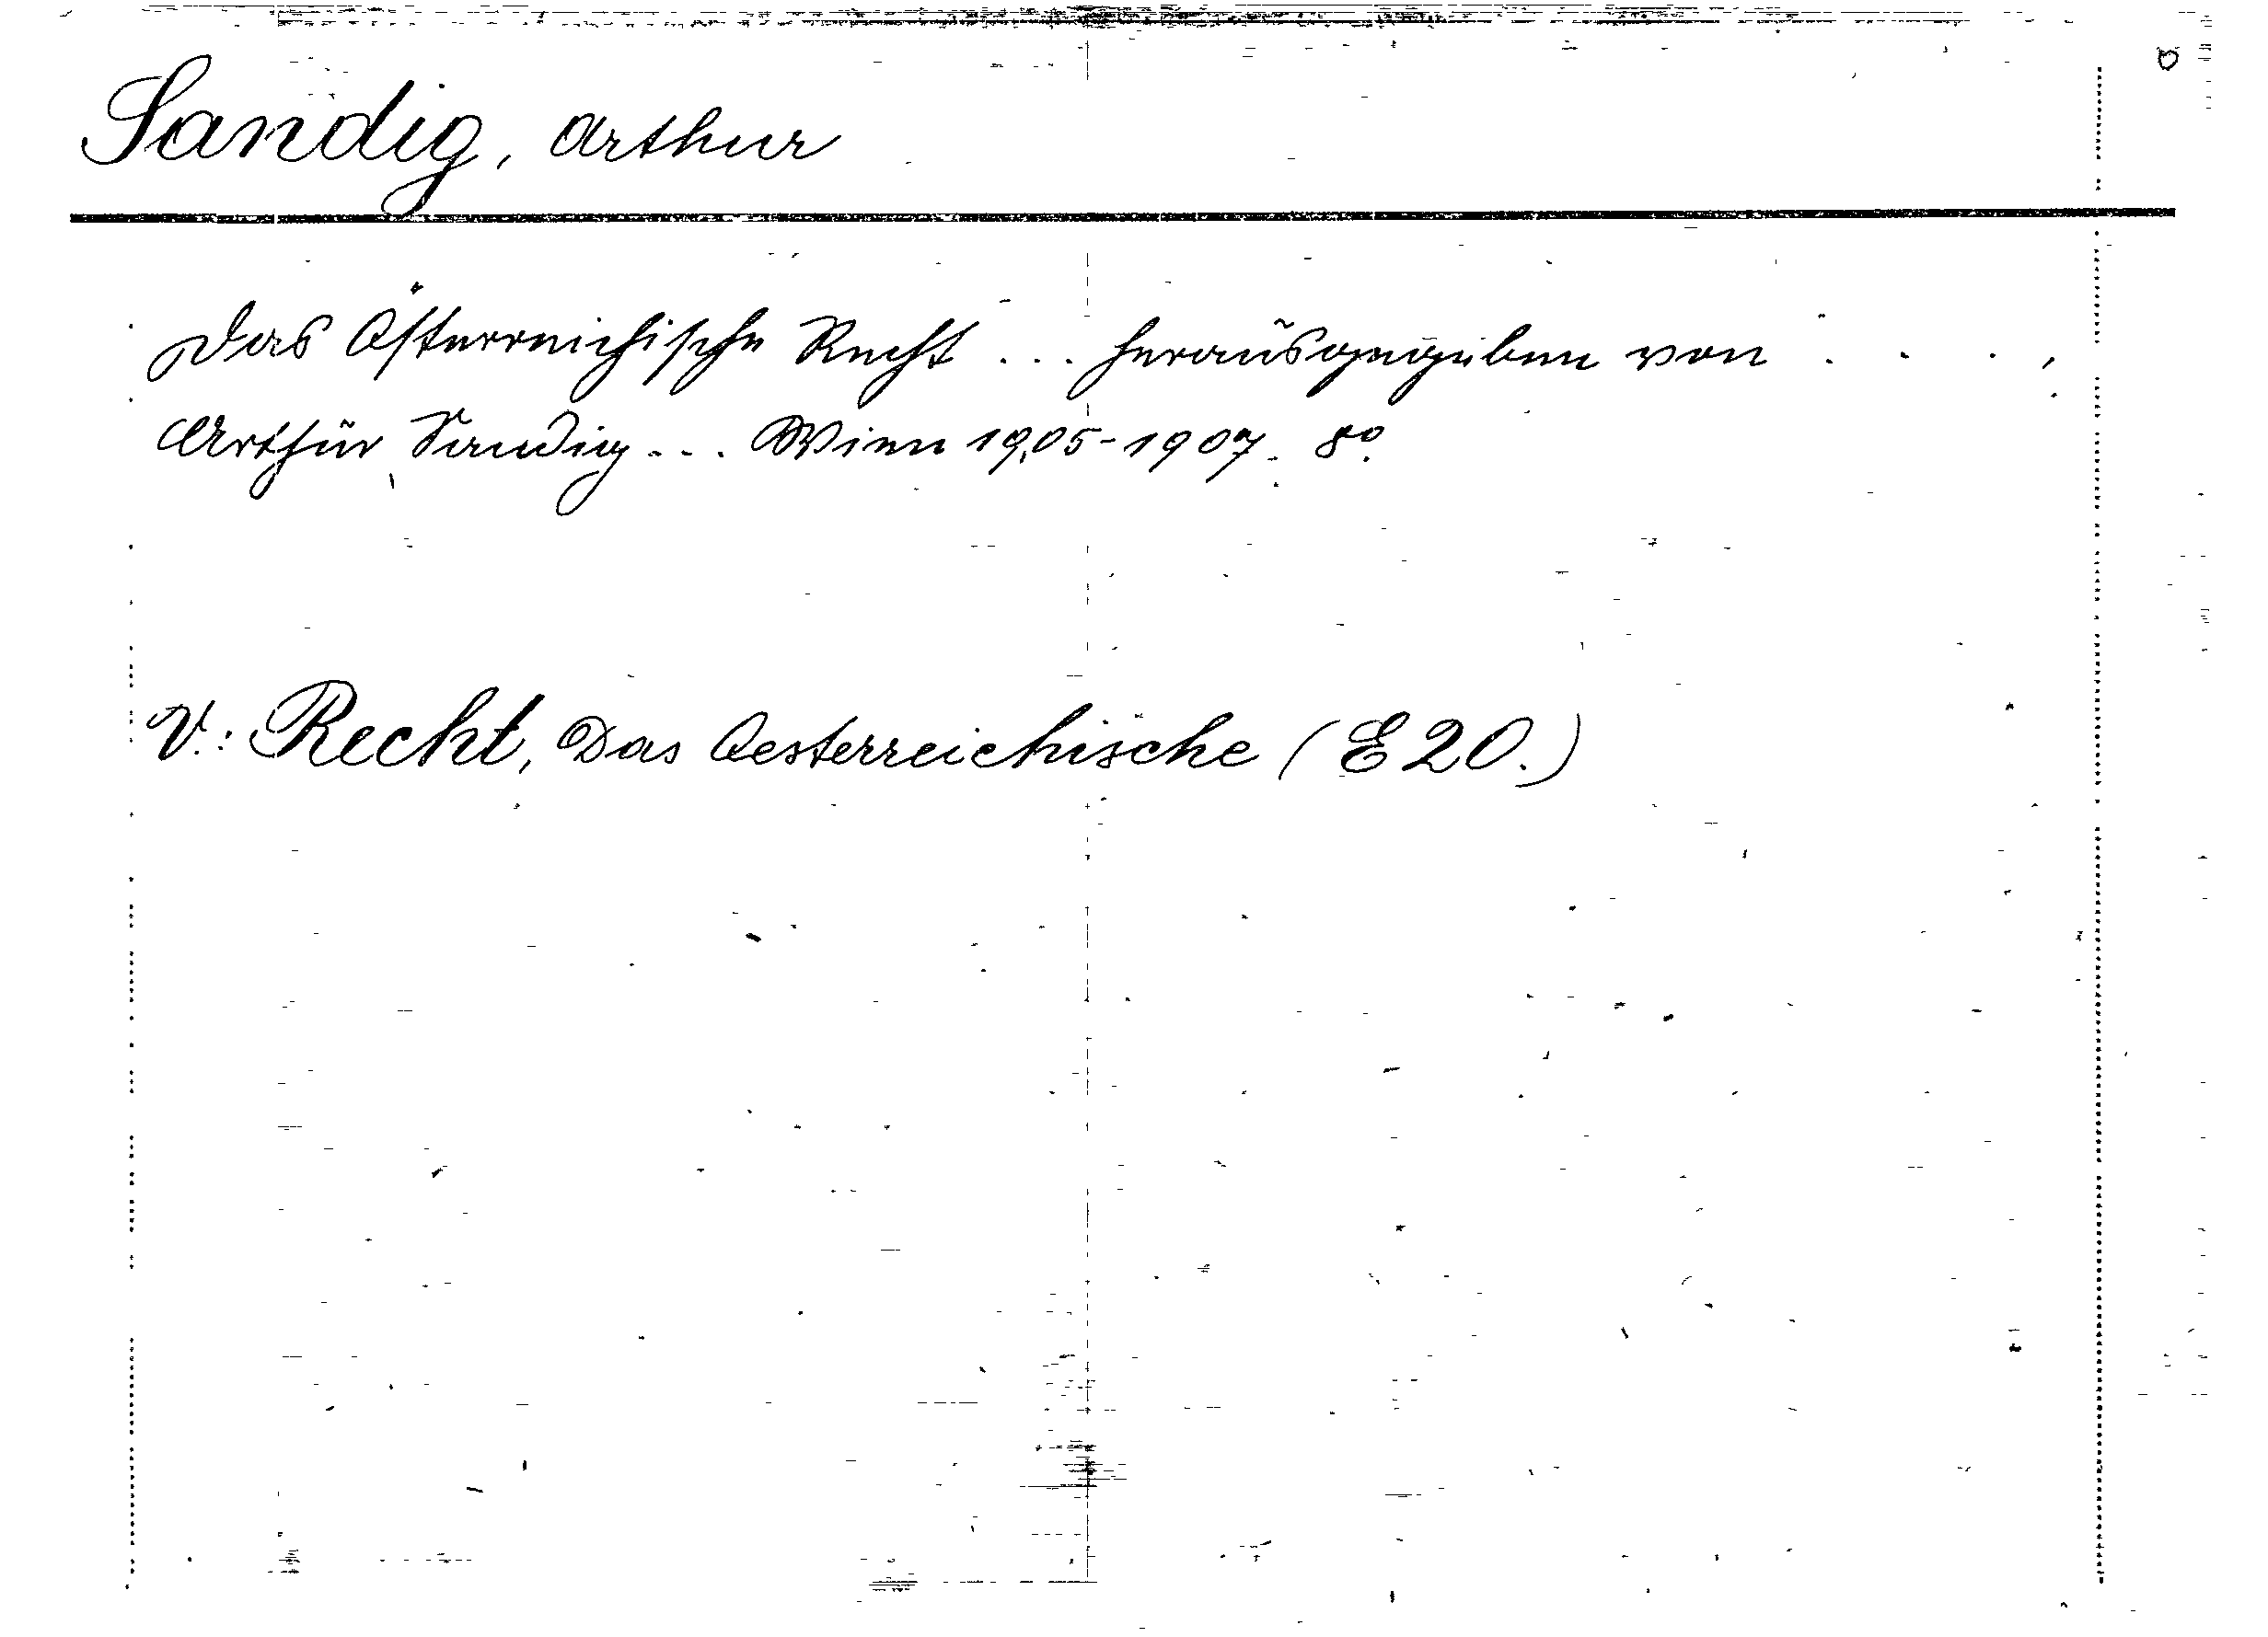 Sandig, Arthur
Das Österreichische Recht ... herausgegeben von . . . ,
Arthur Sandig ... Wien 1905-1907. 8º.
V.: Recht, Das Oesterreichische (E20.)